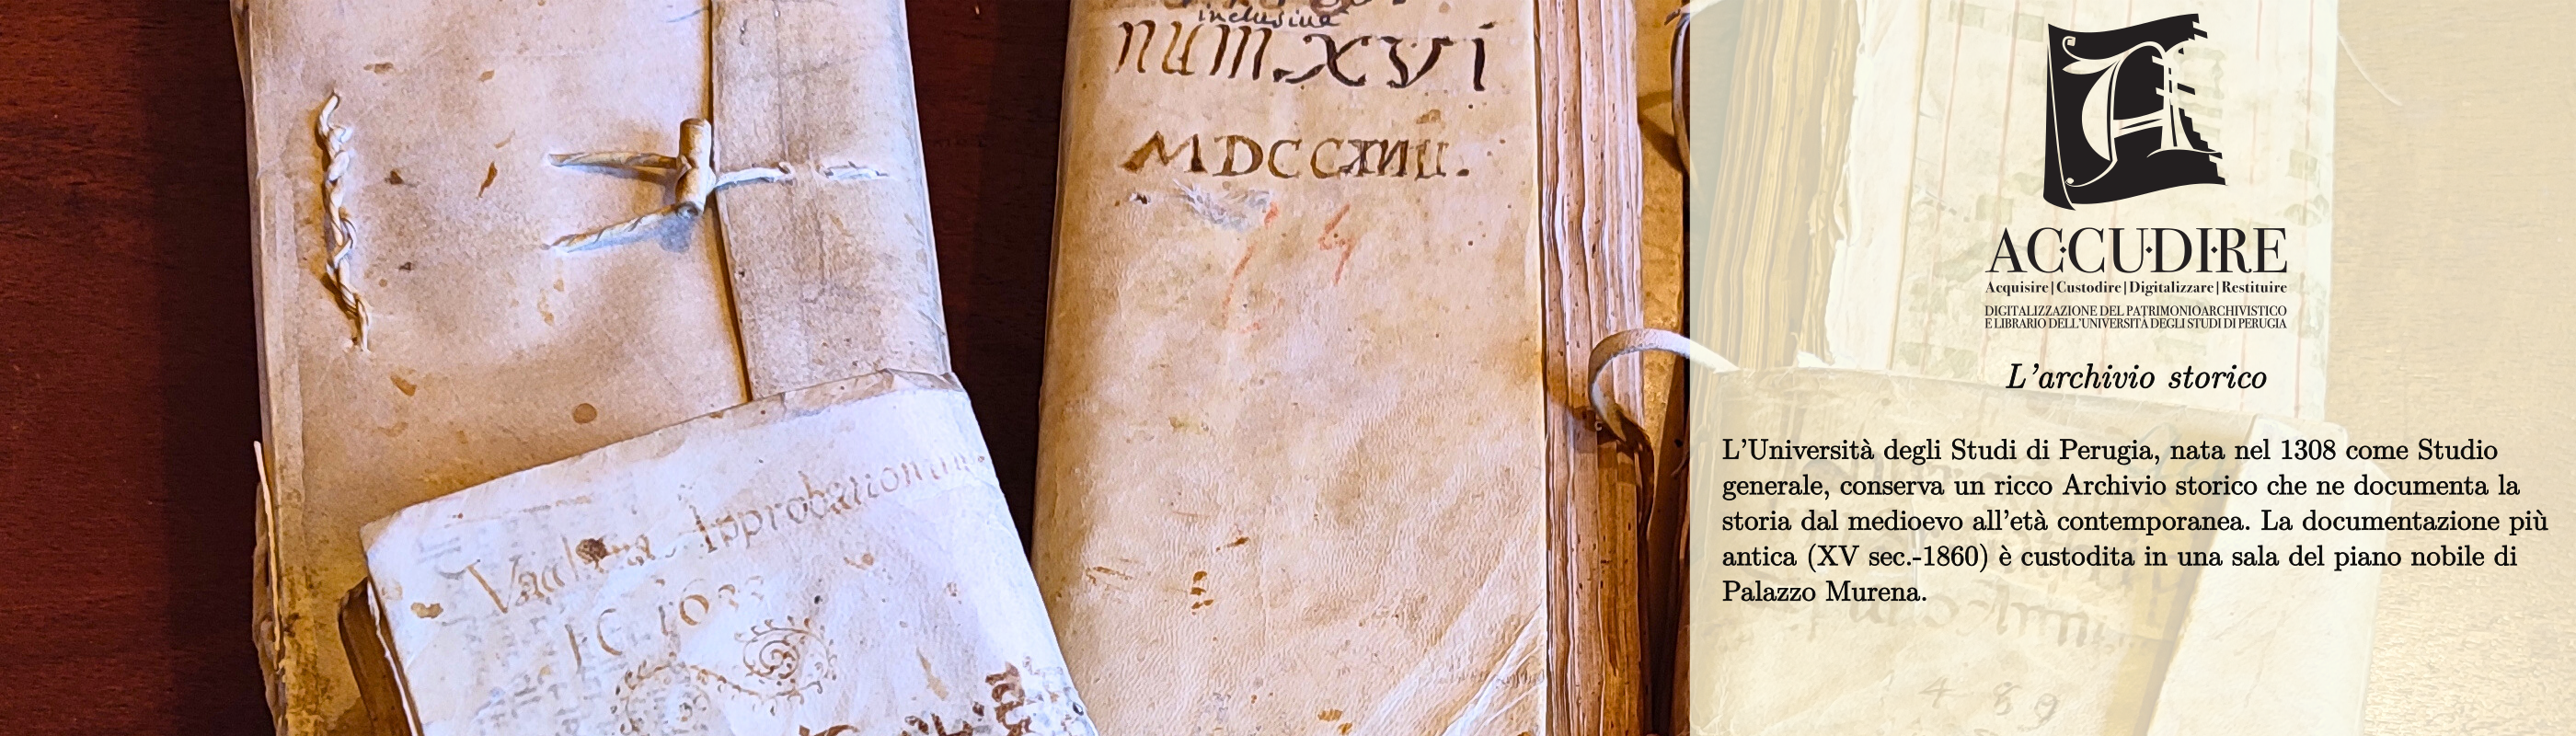 inclusive
num. XVI
MDCCXVIII.
Approbationum
ACCUDIRE
Acquisire|Custodire|Digitalizzare|Restituire
DIGITALIZZAZIONE DEL PATRIMONIO ARCHIVISTICO
E LIBRARIO DELL'UNIVERSITÀ DEGLI STUDI DI PERUGIA
L'archivio storico
L'Università degli Studi di Perugia, nata nel 1308 come Studio
generale, conserva un ricco Archivio storico che ne documenta la
storia dal medioevo all'età contemporanea. La documentazione più
antica (XV sec.-1860) è custodita in una sala del piano nobile di
Palazzo Murena.
489